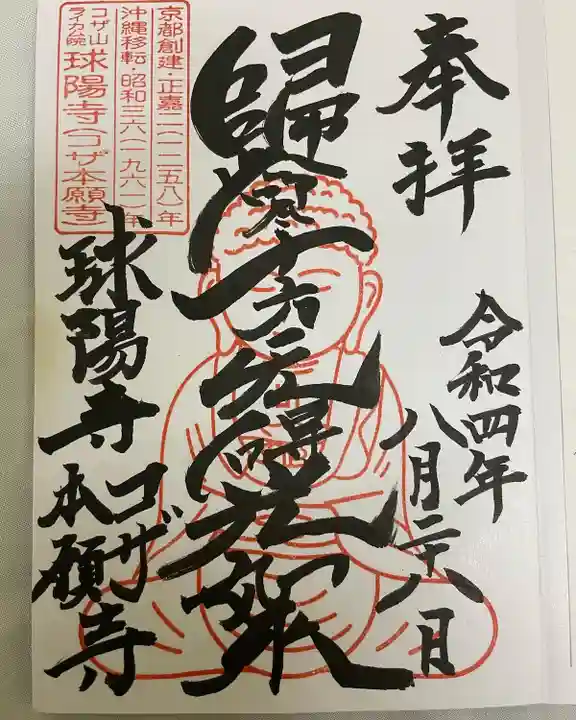 奉拝
令和四年
八月二十八日
歸命尽十方无碍光如来
京都創建・正嘉二(一二五八)年
沖縄移転・昭和三六(一九六一)年
コザ山
ライカム院
球陽寺(コザ本願寺)
球陽寺
コザ
本願寺